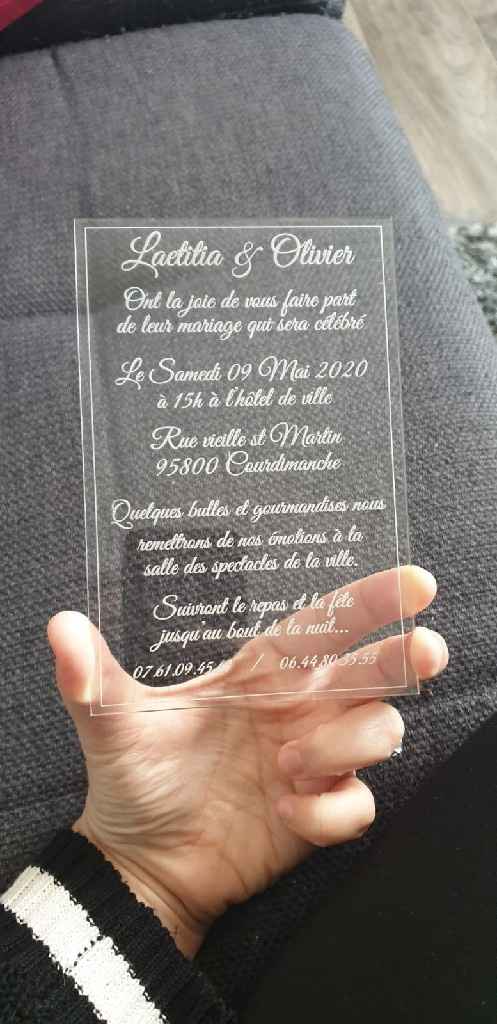 Laetitia & Olivier
Ont la joie de vous faire part
de leur mariage qui sera célébré
Le Samedi 09 Mai 2020
à 15h à l'hôtel de ville
Rue vieille st Martin
95800 Courdimanche
Quelques bulles et gourmandises nous
remettrons de nos émotions à la
salle des spectacles de la ville.
Suivront le repas et la fête
jusqu'au bout de la nuit...
07.61.09.45. / 06.44.80.35.55